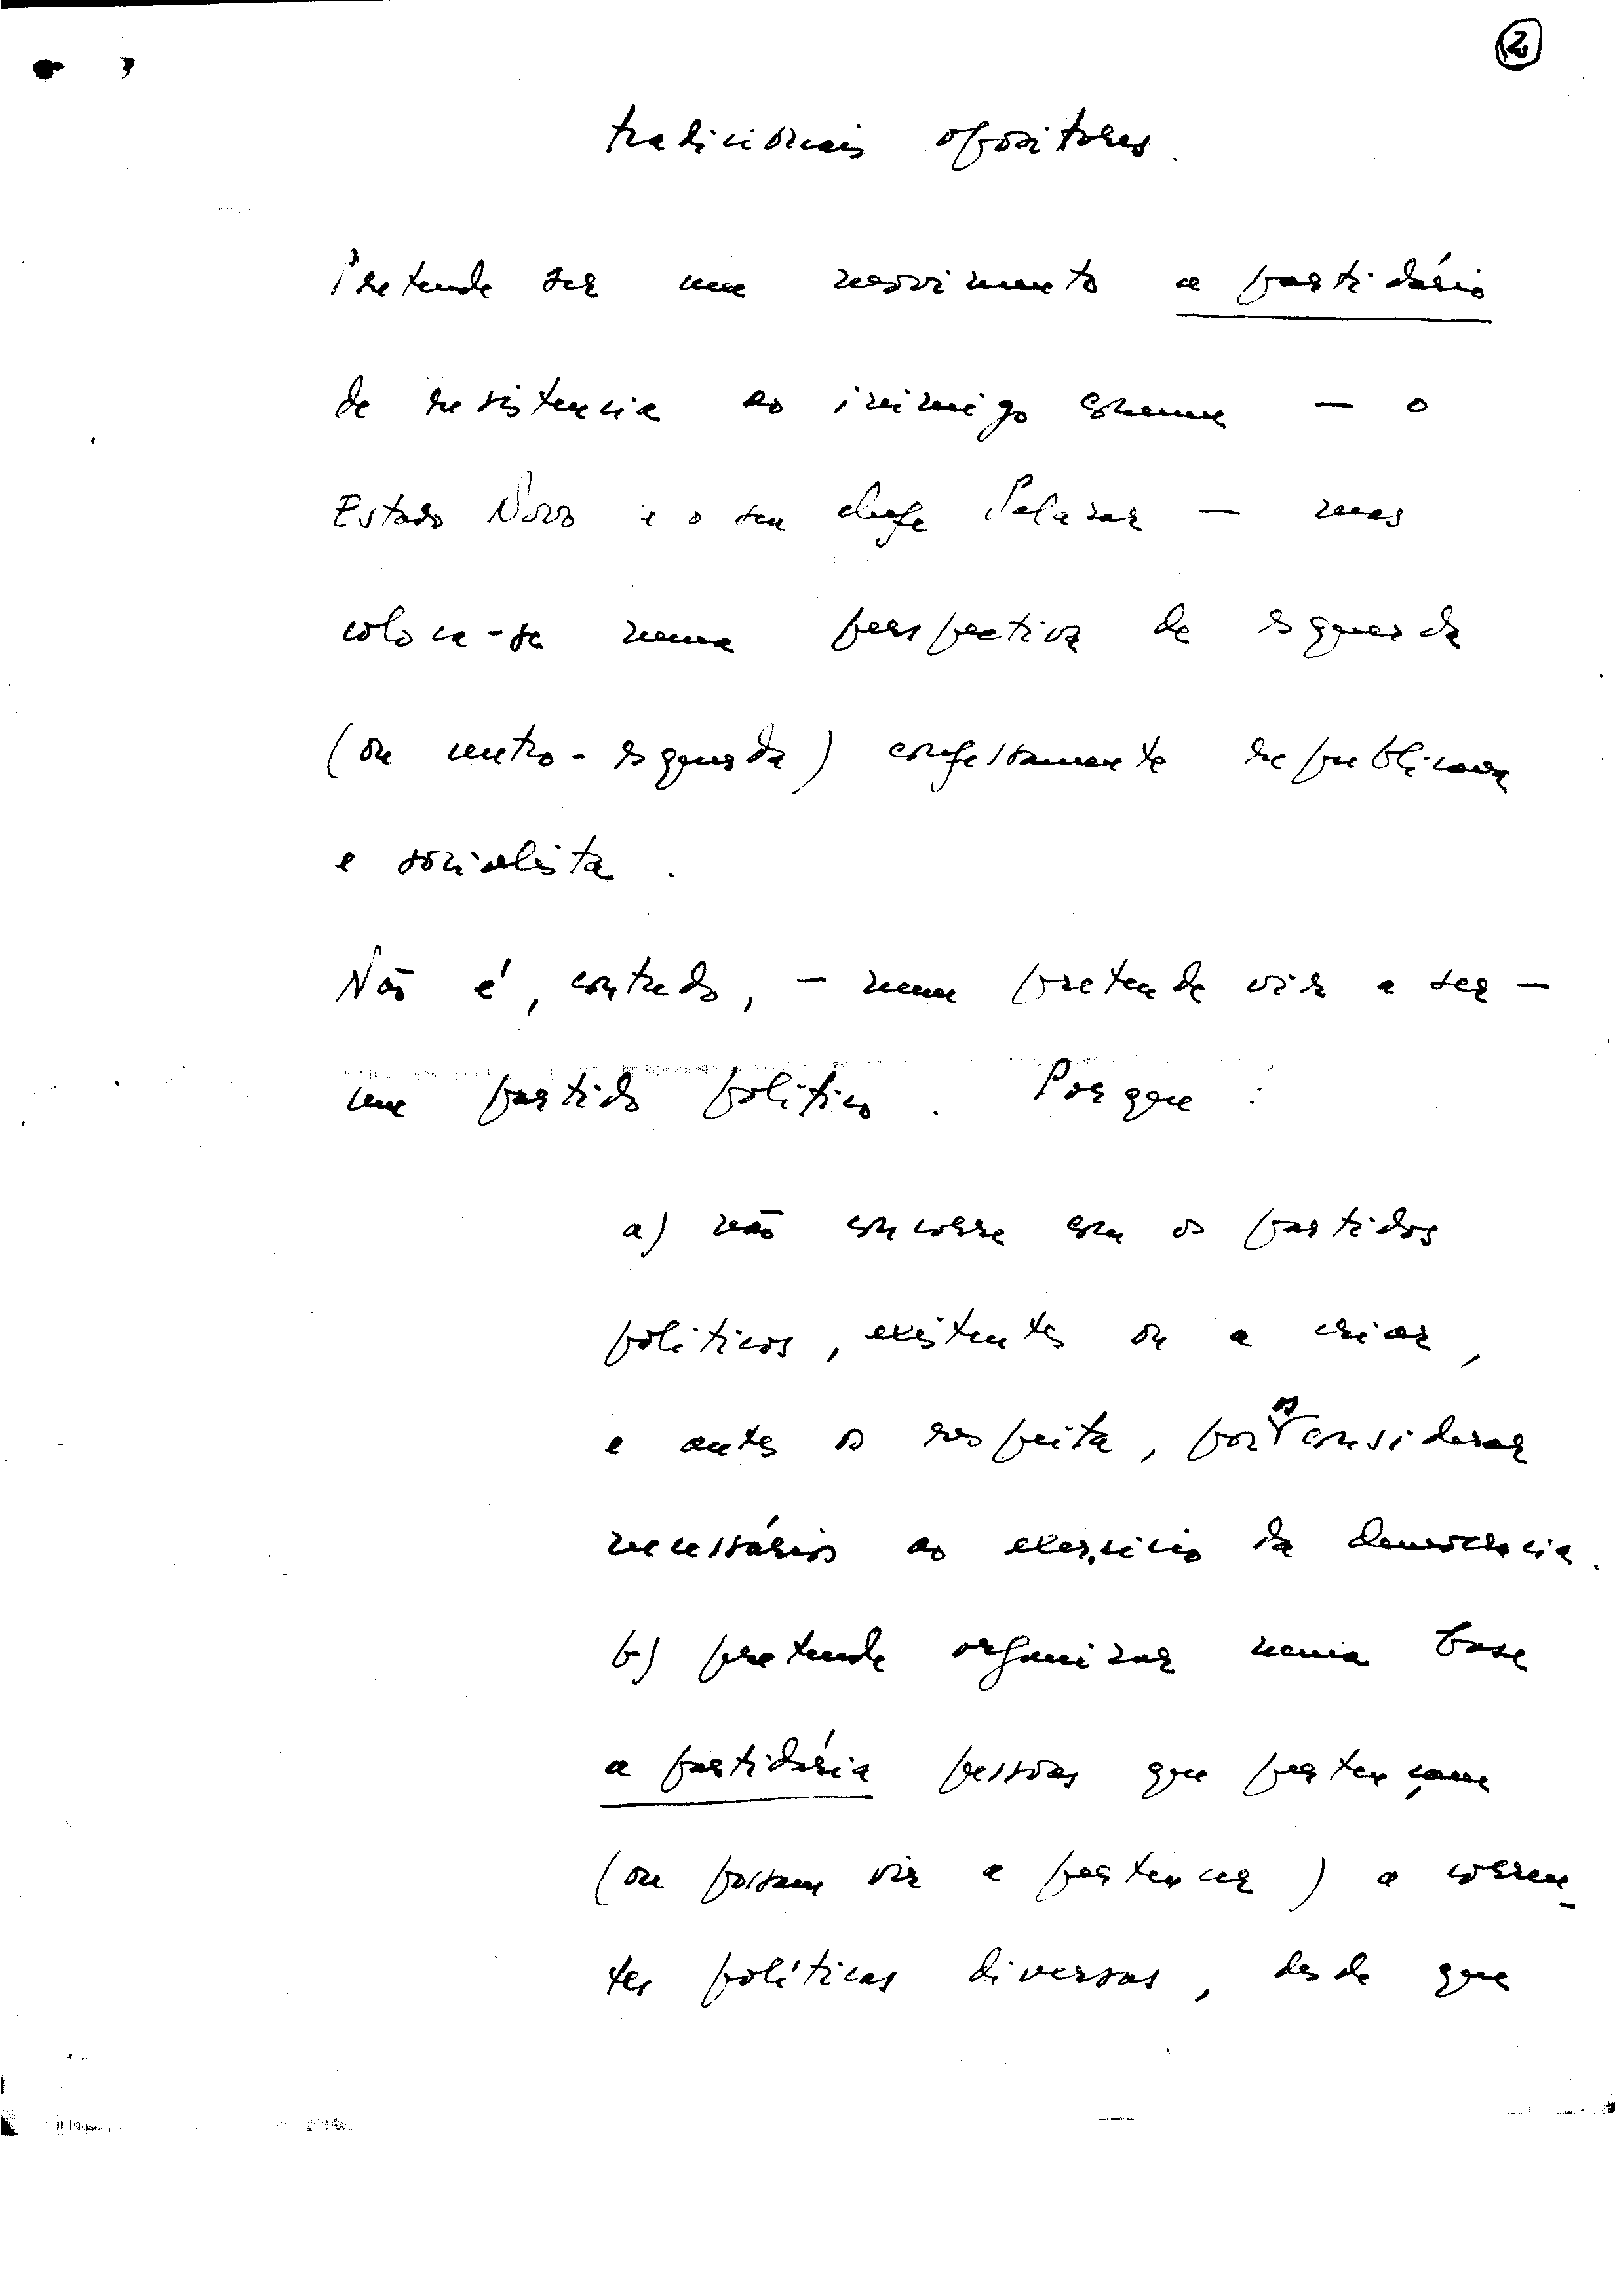 2
tradicionais opositores.
Pretende ser um movimento a partidário
de resistencia ao inimigo comum — o
Estado Novo e o seu chefe Salazar — mas
coloca-se numa perspectiva de esquerda
(ou centro-esquerda) confessamente republicana
e socialista.
Não é, contudo, — nem pretende vir a ser —
um partido politico. Porque:
a) não concorre com os partidos
politicos, existentes ou a criar,
e antes os respeita, por os considerar
necessários ao exercicio da democracia.
b) pretende organizar numa base
a partidária pessoas que pertençam
(ou possam vir a pertencer) a corren-
tes políticas diversas, desde que